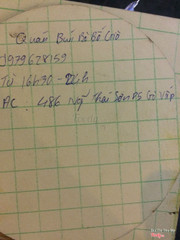 Quán Bún Bò Bố Chò
0979678159
Từ 16h30 - 22h
ĐC: 486 Thái Sơn P5 Gò Vấp